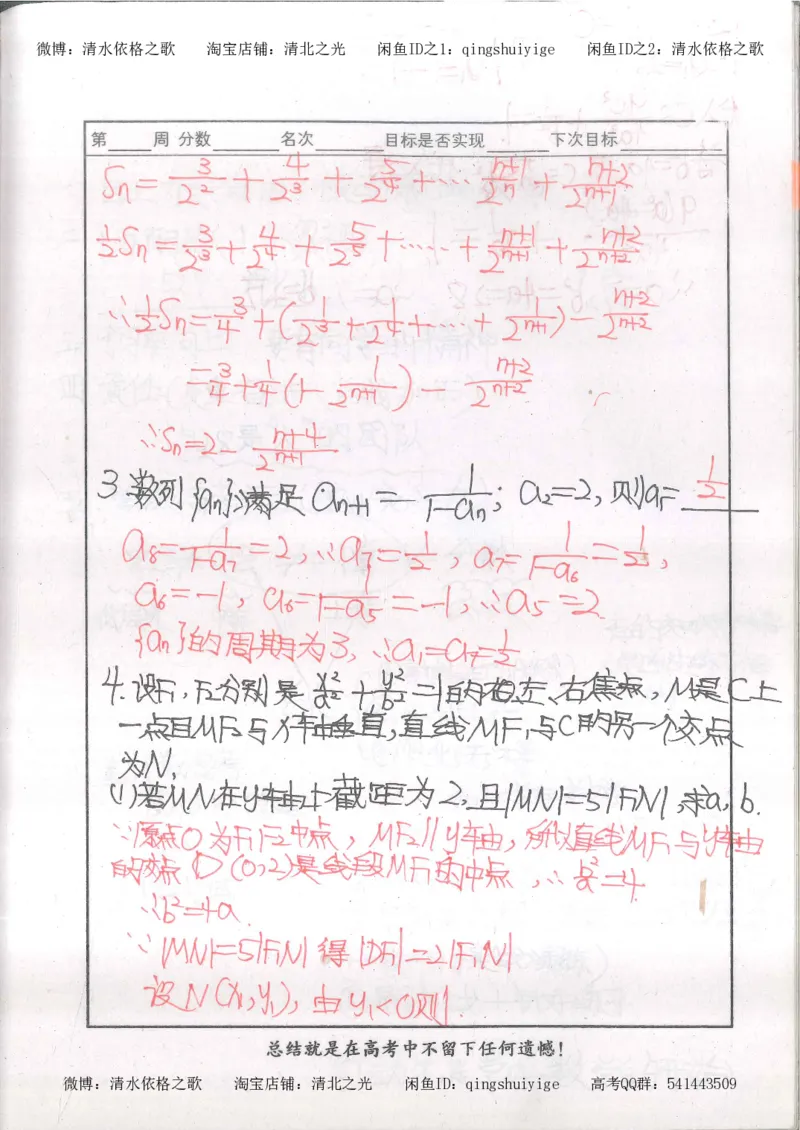 微博：清水依格之歌 淘宝店铺：清北之光 闲鱼ID之1：qingshuiyige 闲鱼ID之2：清水依格之歌
第____周 分数____ 名次____ 目标是否实现____ 下次目标
Sn=3/2²+4/2³+5/2⁴+…+(n+1)/2ⁿ+(n+2)/2ⁿ⁺¹
½Sn=3/2³+4/2⁴+5/2⁵+……+(n+1)/2ⁿ⁺¹+(n+2)/2ⁿ⁺²
∴½Sn=3/4+(1/2³+1/2⁴+…+1/2ⁿ⁺¹)-(n+2)/2ⁿ⁺²
=3/4+1/4(1-1/2ⁿ⁺¹)-(n+2)/2ⁿ⁺²
∴Sn=2-(n+4)/2ⁿ⁺¹
3.数列{an}满足an+1=-1/(1-an)；a2=2,则a1=1/2
a8=1/(1-a7)=2,∴a7=1/2,a7=1/(1-a6)=1/2,
a6=-1,a6=1/(1-a5)=-1,∴a5=2
{an}的周期为3,∴a1=a7=1/2
4.设F1,F2分别是x²/a²+y²/b²=1的左、右焦点,M是C上
一点且MF2与x轴垂直,直线MF1与C的另一个交点
为N,
(1)若MN在y轴上截距为2,且|MN|=5|F1N|,求a,b.
∵原点O为F1F2中点,MF2∥y轴,所以直线MF1与y轴
的交点D(0,2)是线段MF1的中点,∴b²/a=4
∴b²=4a
∵|MN|=5|F1N|得|DF1|=2|F1N|
设N(x1,y1),由y1<0则
总结就是在高考中不留下任何遗憾！
微博：清水依格之歌 淘宝店铺：清北之光 闲鱼ID：qingshuiyige 高考QQ群：541443509